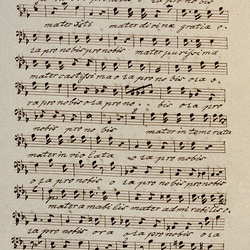 ra pro nobis
mater Xsti mater divinæ gratiæ o
ra pro nobis pro nobis mater purissima
mater castissima o ra pro no bis o ra o
ra pro nobis o ra pro no bis o ra pro
nobis pro no bis mater in temerata
mater in vio lata o ra pro nobis
o ra pro nobis o ra pro nobis o ra pro nobis
mater amabilis mater admirabilis o
ra pro nobis o ra o ra pro nobis o ra pro